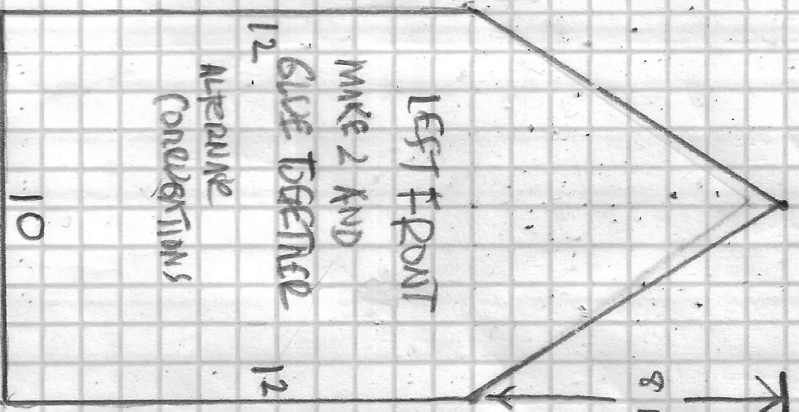 8
LEFT FRONT
MAKE 2 AND
GLUE TOGETHER
12 12
ALTERNAE
CORRUGATIONS
10